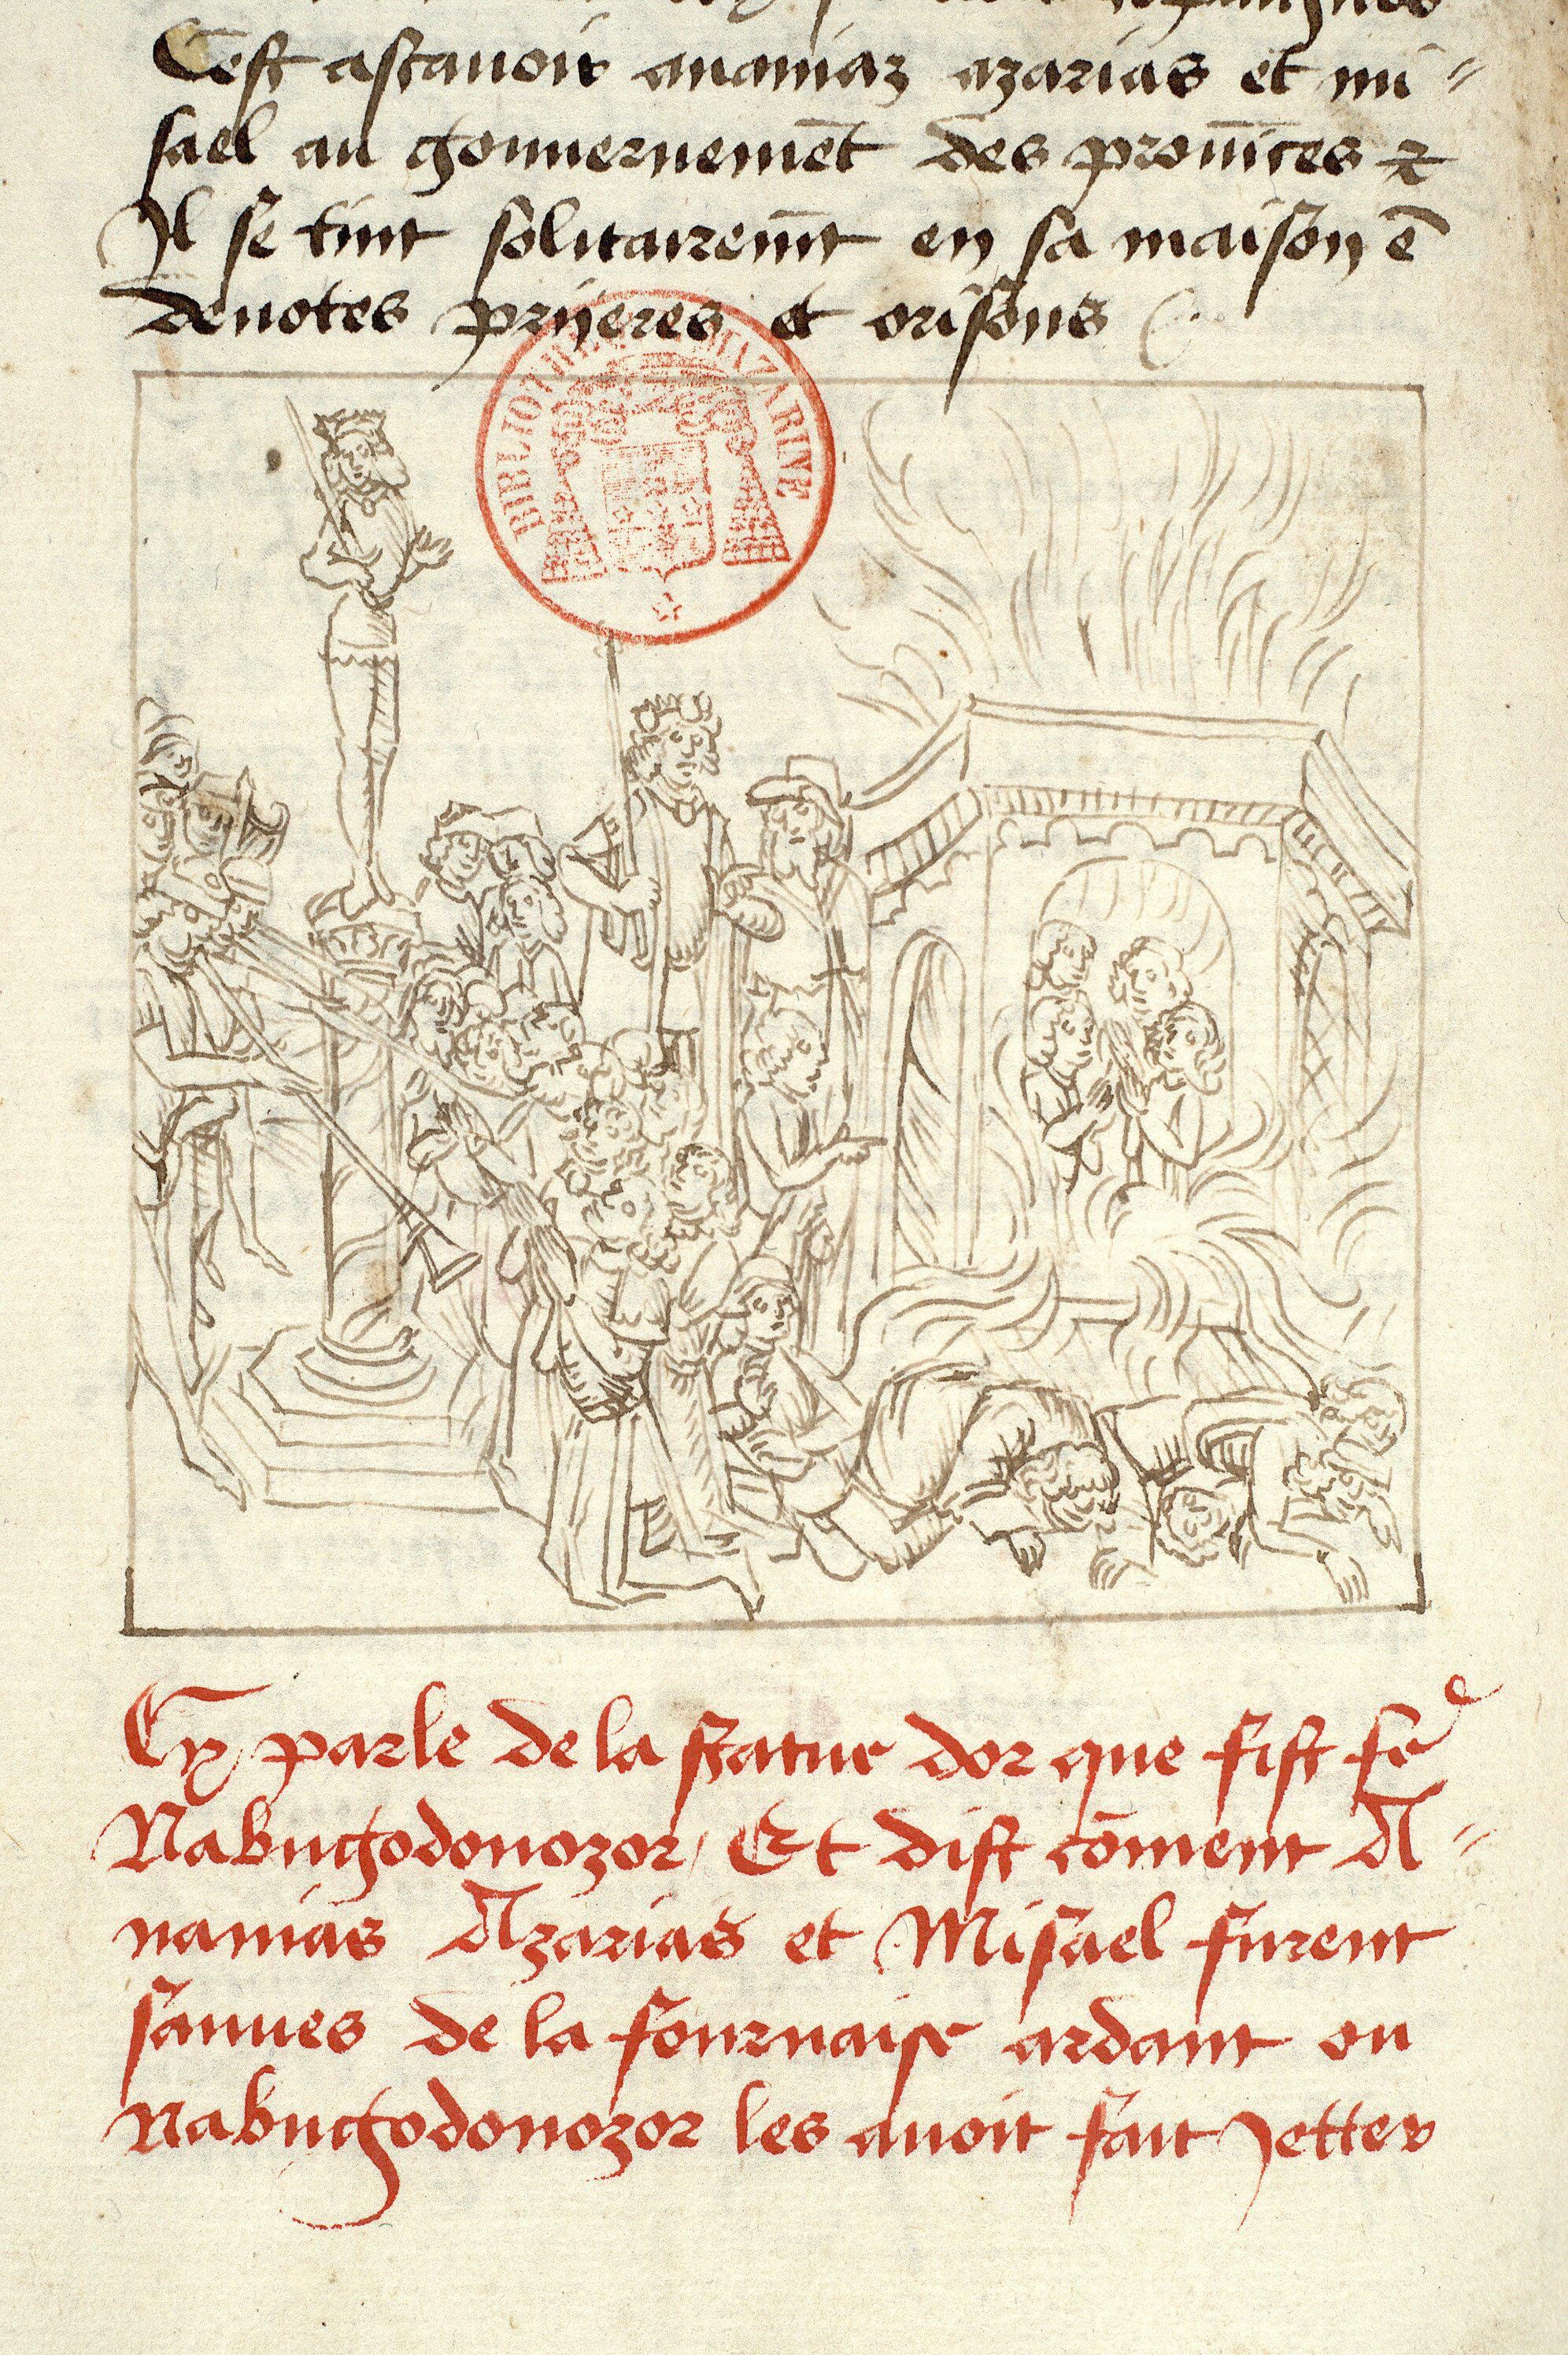 Cest ascauoir ananiaz azarias et mi〃
sael au gouuernemēt des prouīces ⁊
Il se tint solitairemīt en sa maison ē
deuotes prijeres et orisons
BIBLIOTHEQUE MAZARINE
Cy parle de la statue dor que fist fē
Nabugodonozor / Et dist cōment A〃
nanias Azarias et Misael furent
sauues de la fournaise ardant ou
Nabugodonozor les auoit fait Jetter